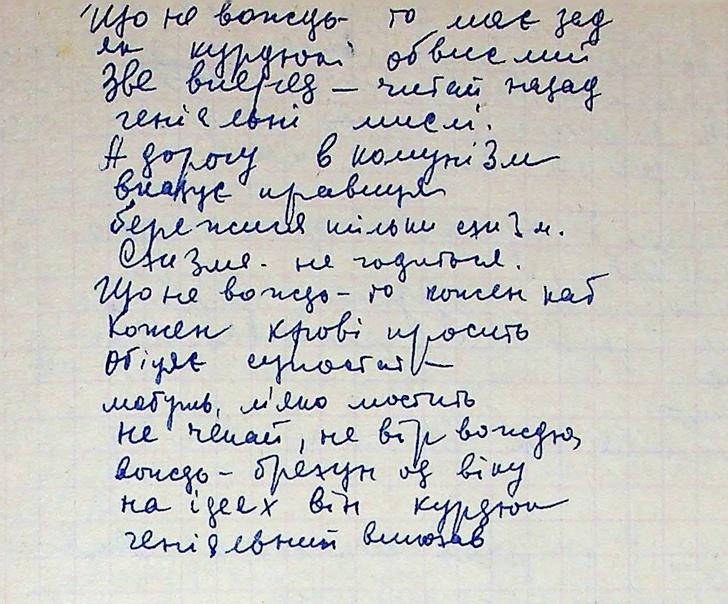 Що не вождь - то має зад
як курдюк обвислий
Зве вперед – читай назад
геніяльні мислі.
А дорогу в комунізм
вказує правиця
бережися тільки схизм.
Схизма - не годиться.
Що не вождь – то кожен кат
Кожен крові просить
Обіцяє супостат –
мабуть, м'яко мостить
не чекай, не вір вождю,
вождь – брехун од віку
на ідеях він курдюк
геніяльний випхав